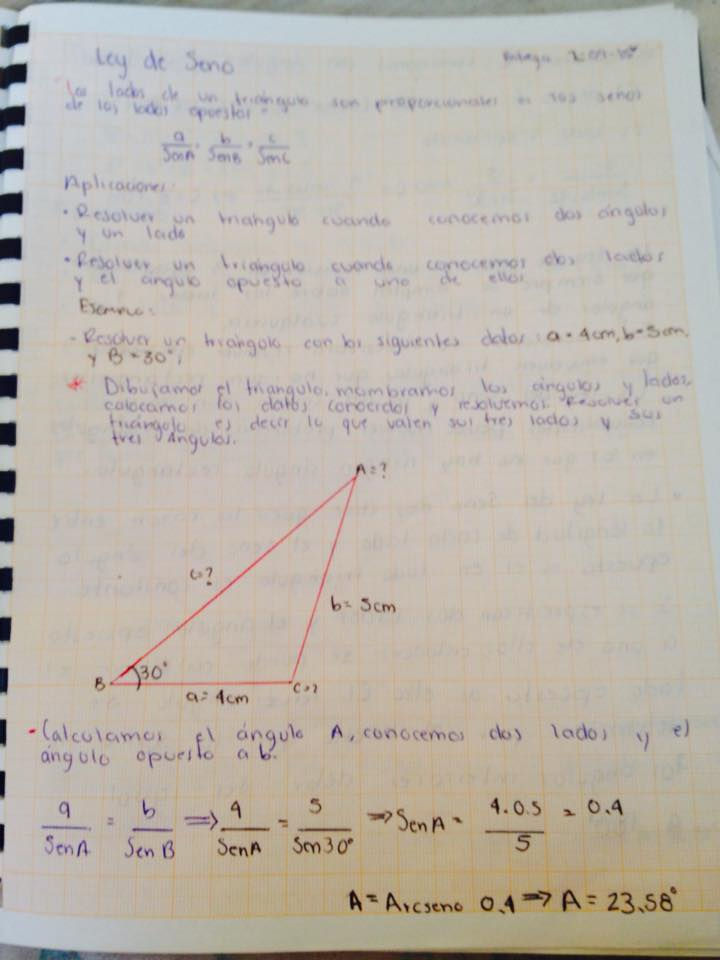 Ley de Seno
Los lados de un triángulo son proporcionales a los senos
de los lados opuestos.
a/SenA = b/SenB = c/SenC
Aplicaciones:
• Resolver un triangulo cuando conocemos dos ángulos
y un lado
• Resolver un triángulo cuando conocemos dos lados
y el ángulo opuesto a uno de ellos
Ejemplo:
- Resolver un triangulo con los siguientes datos: a = 4cm, b = 5cm
y B = 30°;
* Dibujamos el triangulo, nombramos los ángulos y lados,
colocamos los datos conocidos y resolvemos. Resolver un
triángulo es decir lo que valen sus tres lados y sus
tres Ángulos.
A = ?
c = ?
b = 5cm
B 30° C = ?
a = 4cm
- Calculamos el ángulo A, conocemos dos lados y el
ángulo opuesto a b.
a/SenA = b/SenB ⇒ 4/SenA = 5/Sen30° ⇒ SenA = 4.0.5/5 = 0.4
A = Arcseno 0.4 ⇒ A = 23.58°